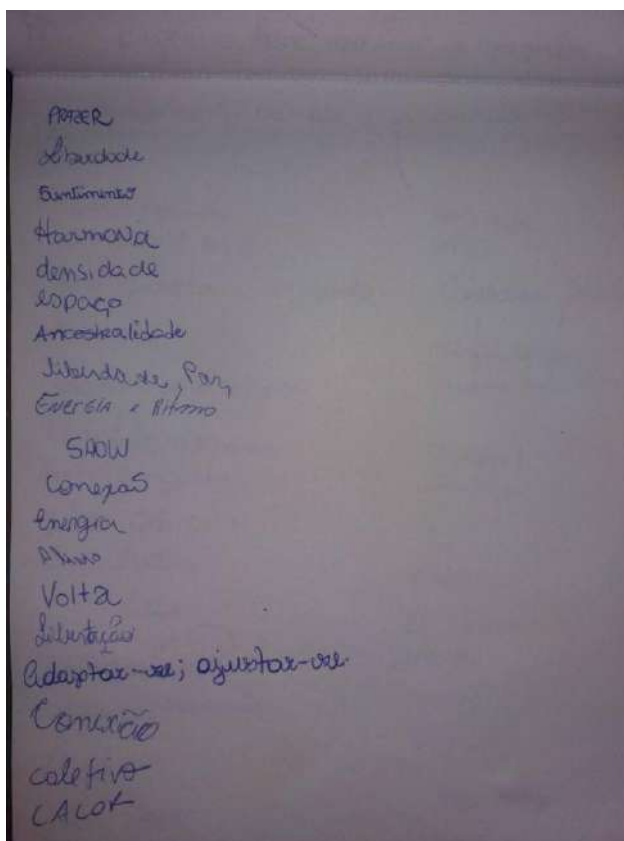 PRAZER
Liberdade
Sentimento
Harmonia
densidade
espaço
Ancestralidade
liberdade, Paz,
ENERGIA e Ritmo
SHOW
Conexão
Energia
Volta
Libertação
Adaptar-se; ajustar-se
Conexão
coletivo
CALOR